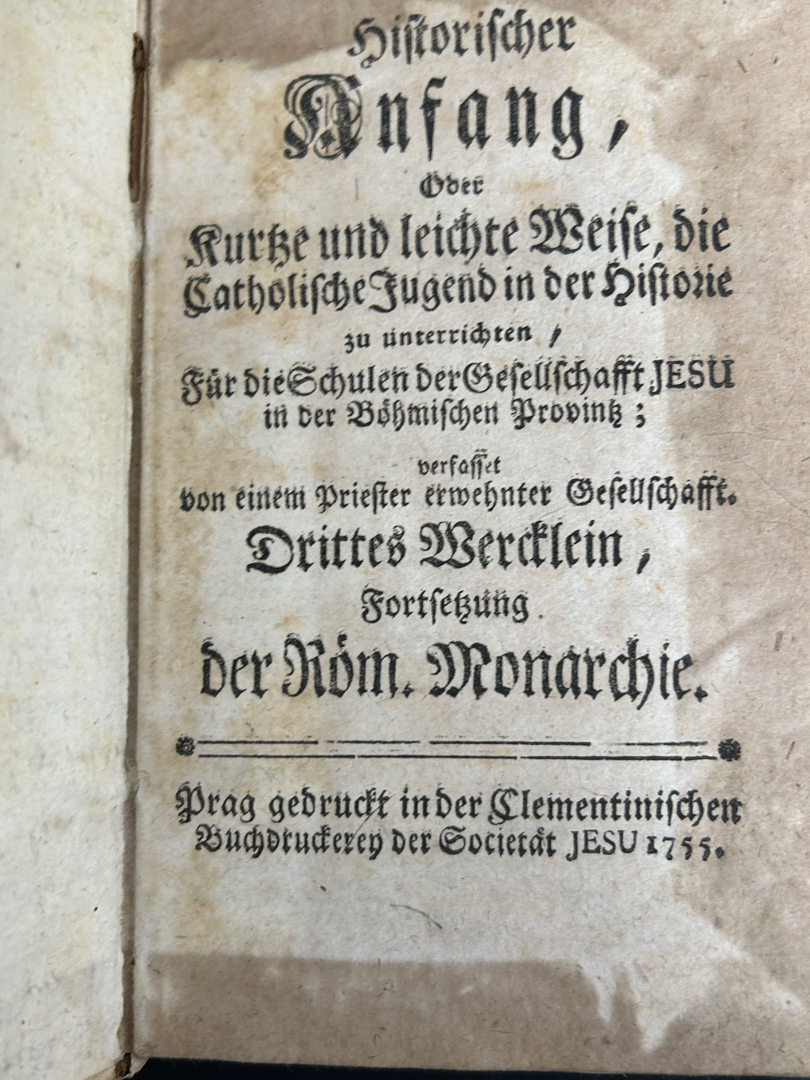 Historischer
Anfang,
Oder
Kurtze und leichte Weise, die
Catholische Jugend in der Historie
zu unterrichten,
Für die Schulen der Gesellschafft JESU
in der Böhmischen Provintz;
verfasset
von einem Priester erwehnter Gesellschafft.
Drittes Wercklein,
Fortsetzung
der Röm. Monarchie.
Prag gedruckt in der Clementinischen
Buchdruckerey der Societät JESU 1755.